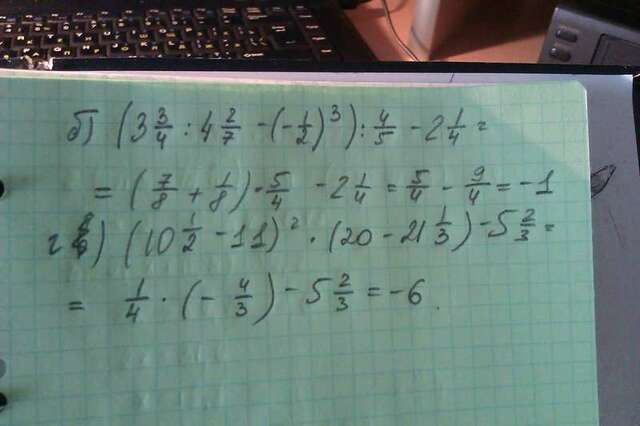 б) (3 3/4 : 4 2/7 - (-1/2)^3) : 4/5 - 2 1/4 =
= (7/8 + 1/8) · 5/4 - 2 1/4 = 5/4 - 9/4 = -1
г) (10 1/2 - 11)^2 · (20 - 21 1/3) - 5 2/3 =
= 1/4 · (- 4/3) - 5 2/3 = -6.